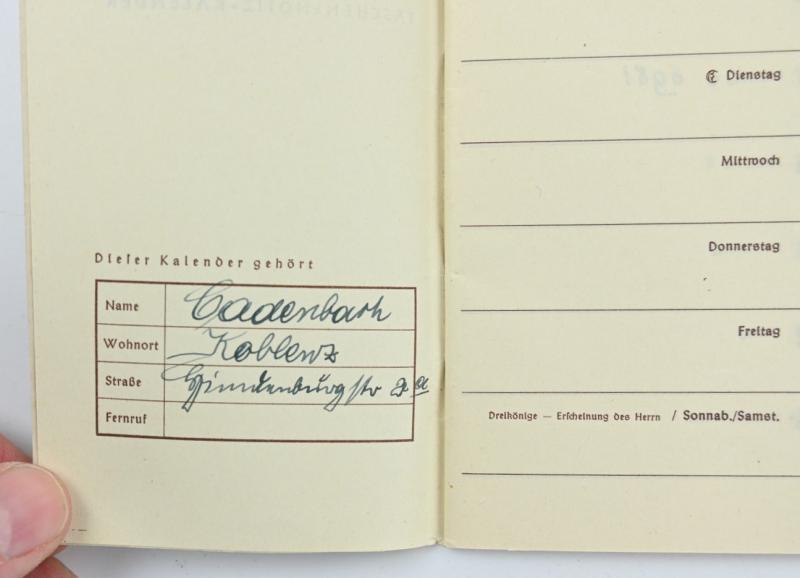 Dieser Kalender gehört
Name Cadenbach
Wohnort Koblenz
Straße Hindenburgstr 2 a
Fernruf
Dienstag
Mittwoch
Donnerstag
Freitag
Dreikönige — Erscheinung des Herrn / Sonnab./Samst.